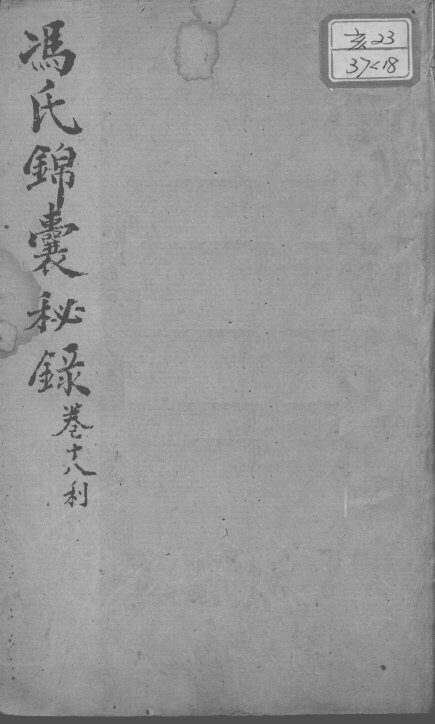 馮氏錦囊秘録卷十八利
亥23
37<18